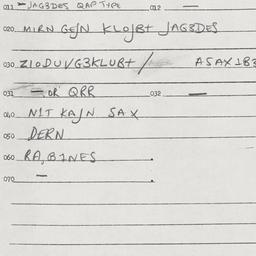 011 — JAG3DES QAP TYPE 012 —
020 MIRN GEJN KLOJB+ JAG8DES
030 Z10DUVG3KLUB+ / ASAX1B3
031 — OR QRR 032 —
040 NIT KAJN SAX
050 DERN
060 RA, B1NES
070